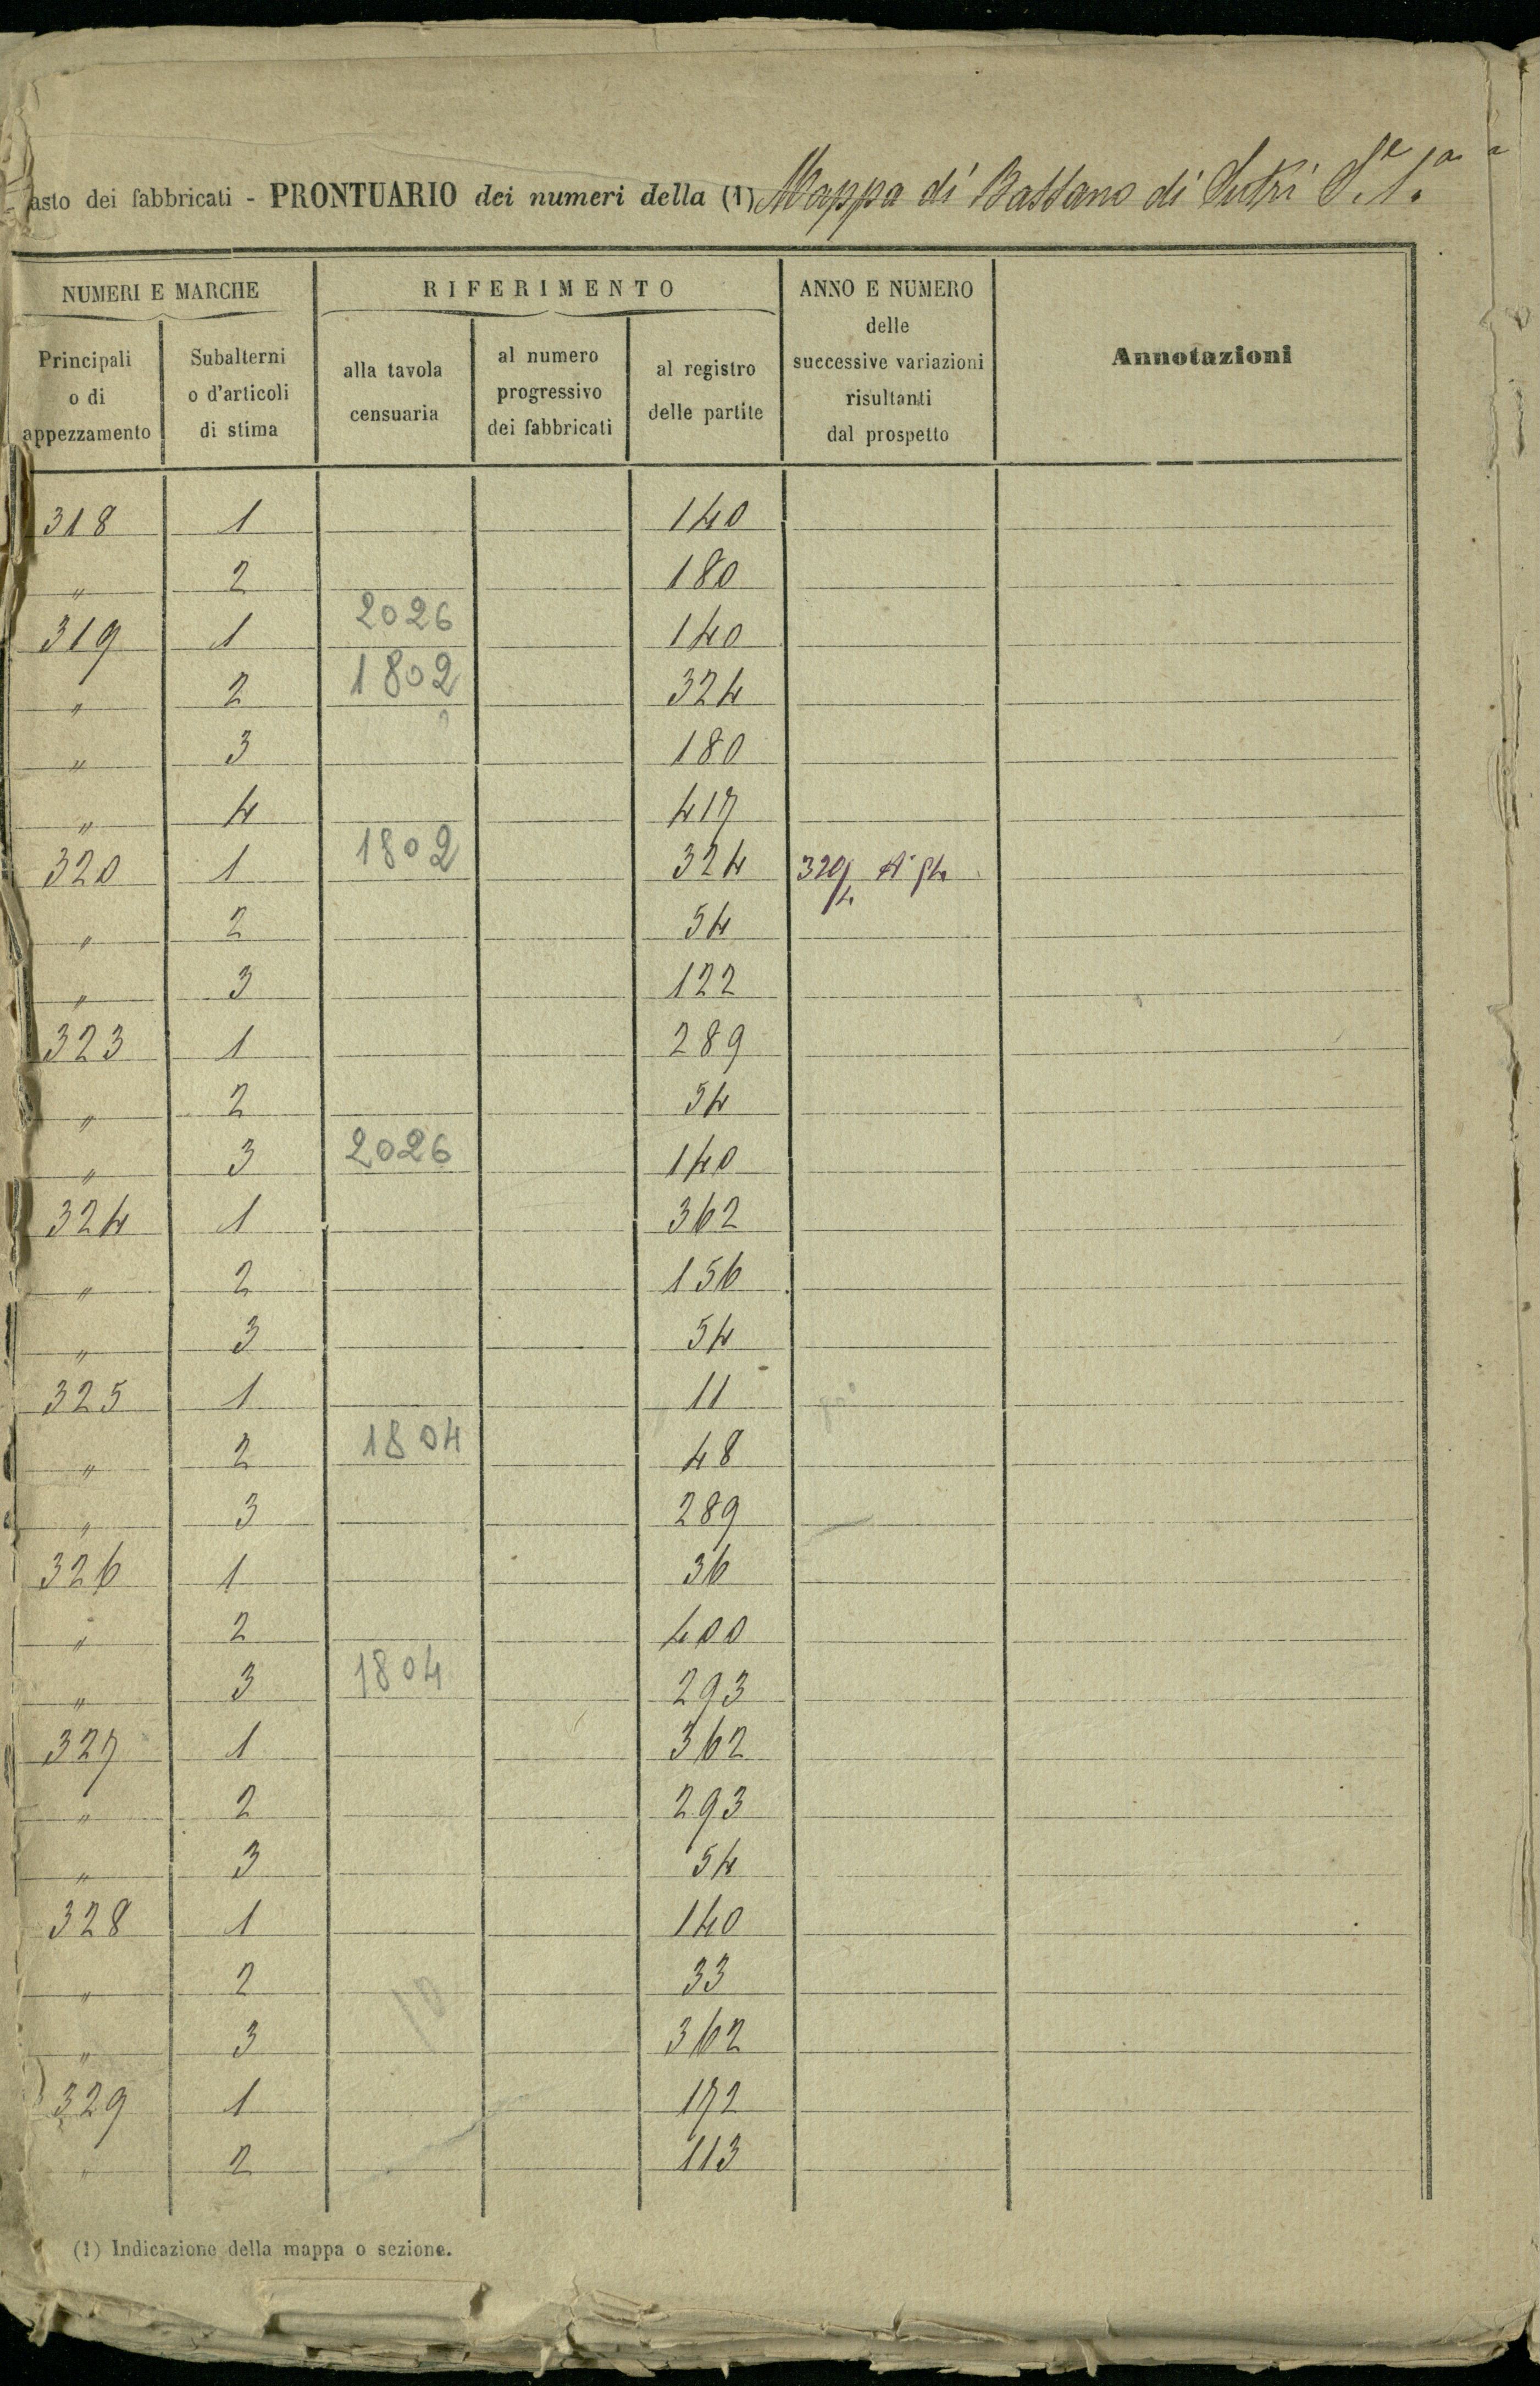 asto dei fabbricati - PRONTUARIO dei numeri della (1) Mappa di Bassano di Sutri Se. 1a.
NUMERI E MARCHE RIFERIMENTO ANNO E NUMERO delle successive variazioni risultanti dal prospetto Annotazioni
Principali o di appezzamento Subalterni o d'articoli di stima alla tavola censuaria al numero progressivo dei fabbricati al registro delle partite
318 1 140
" 2 180
319 1 2026 140
" 2 1802 324
" 3 180
" 4 417
320 1 1802 324 320/4
" 2 54
" 3 122
323 1 289
" 2 54
" 3 2026 140
324 1 362
" 2 156
" 3 54
325 1 11
" 2 1804 48
" 3 289
326 1 36
" 2 400
" 3 1804 293
327 1 362
" 2 293
" 3 54
328 1 140
" 2 33
" 3 362
329 1 172
" 2 113
(1) Indicazione della mappa o sezione.